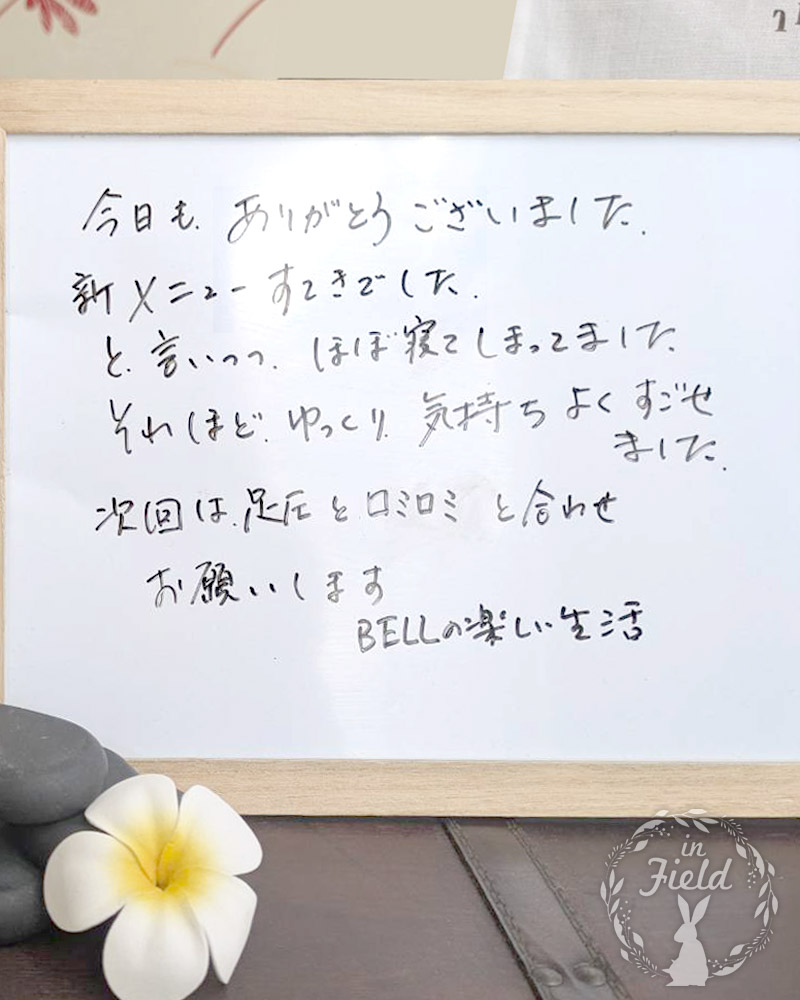 今日も、ありがとうございました。
新メニューすてきでした。
と、言いつつ、ほぼ寝てしまってました
それほど、ゆっくり、気持ちよくすごせ
ました。
次回は、足圧とロミロミと合わせ
お願いします
BELLの楽しい生活
in
Field